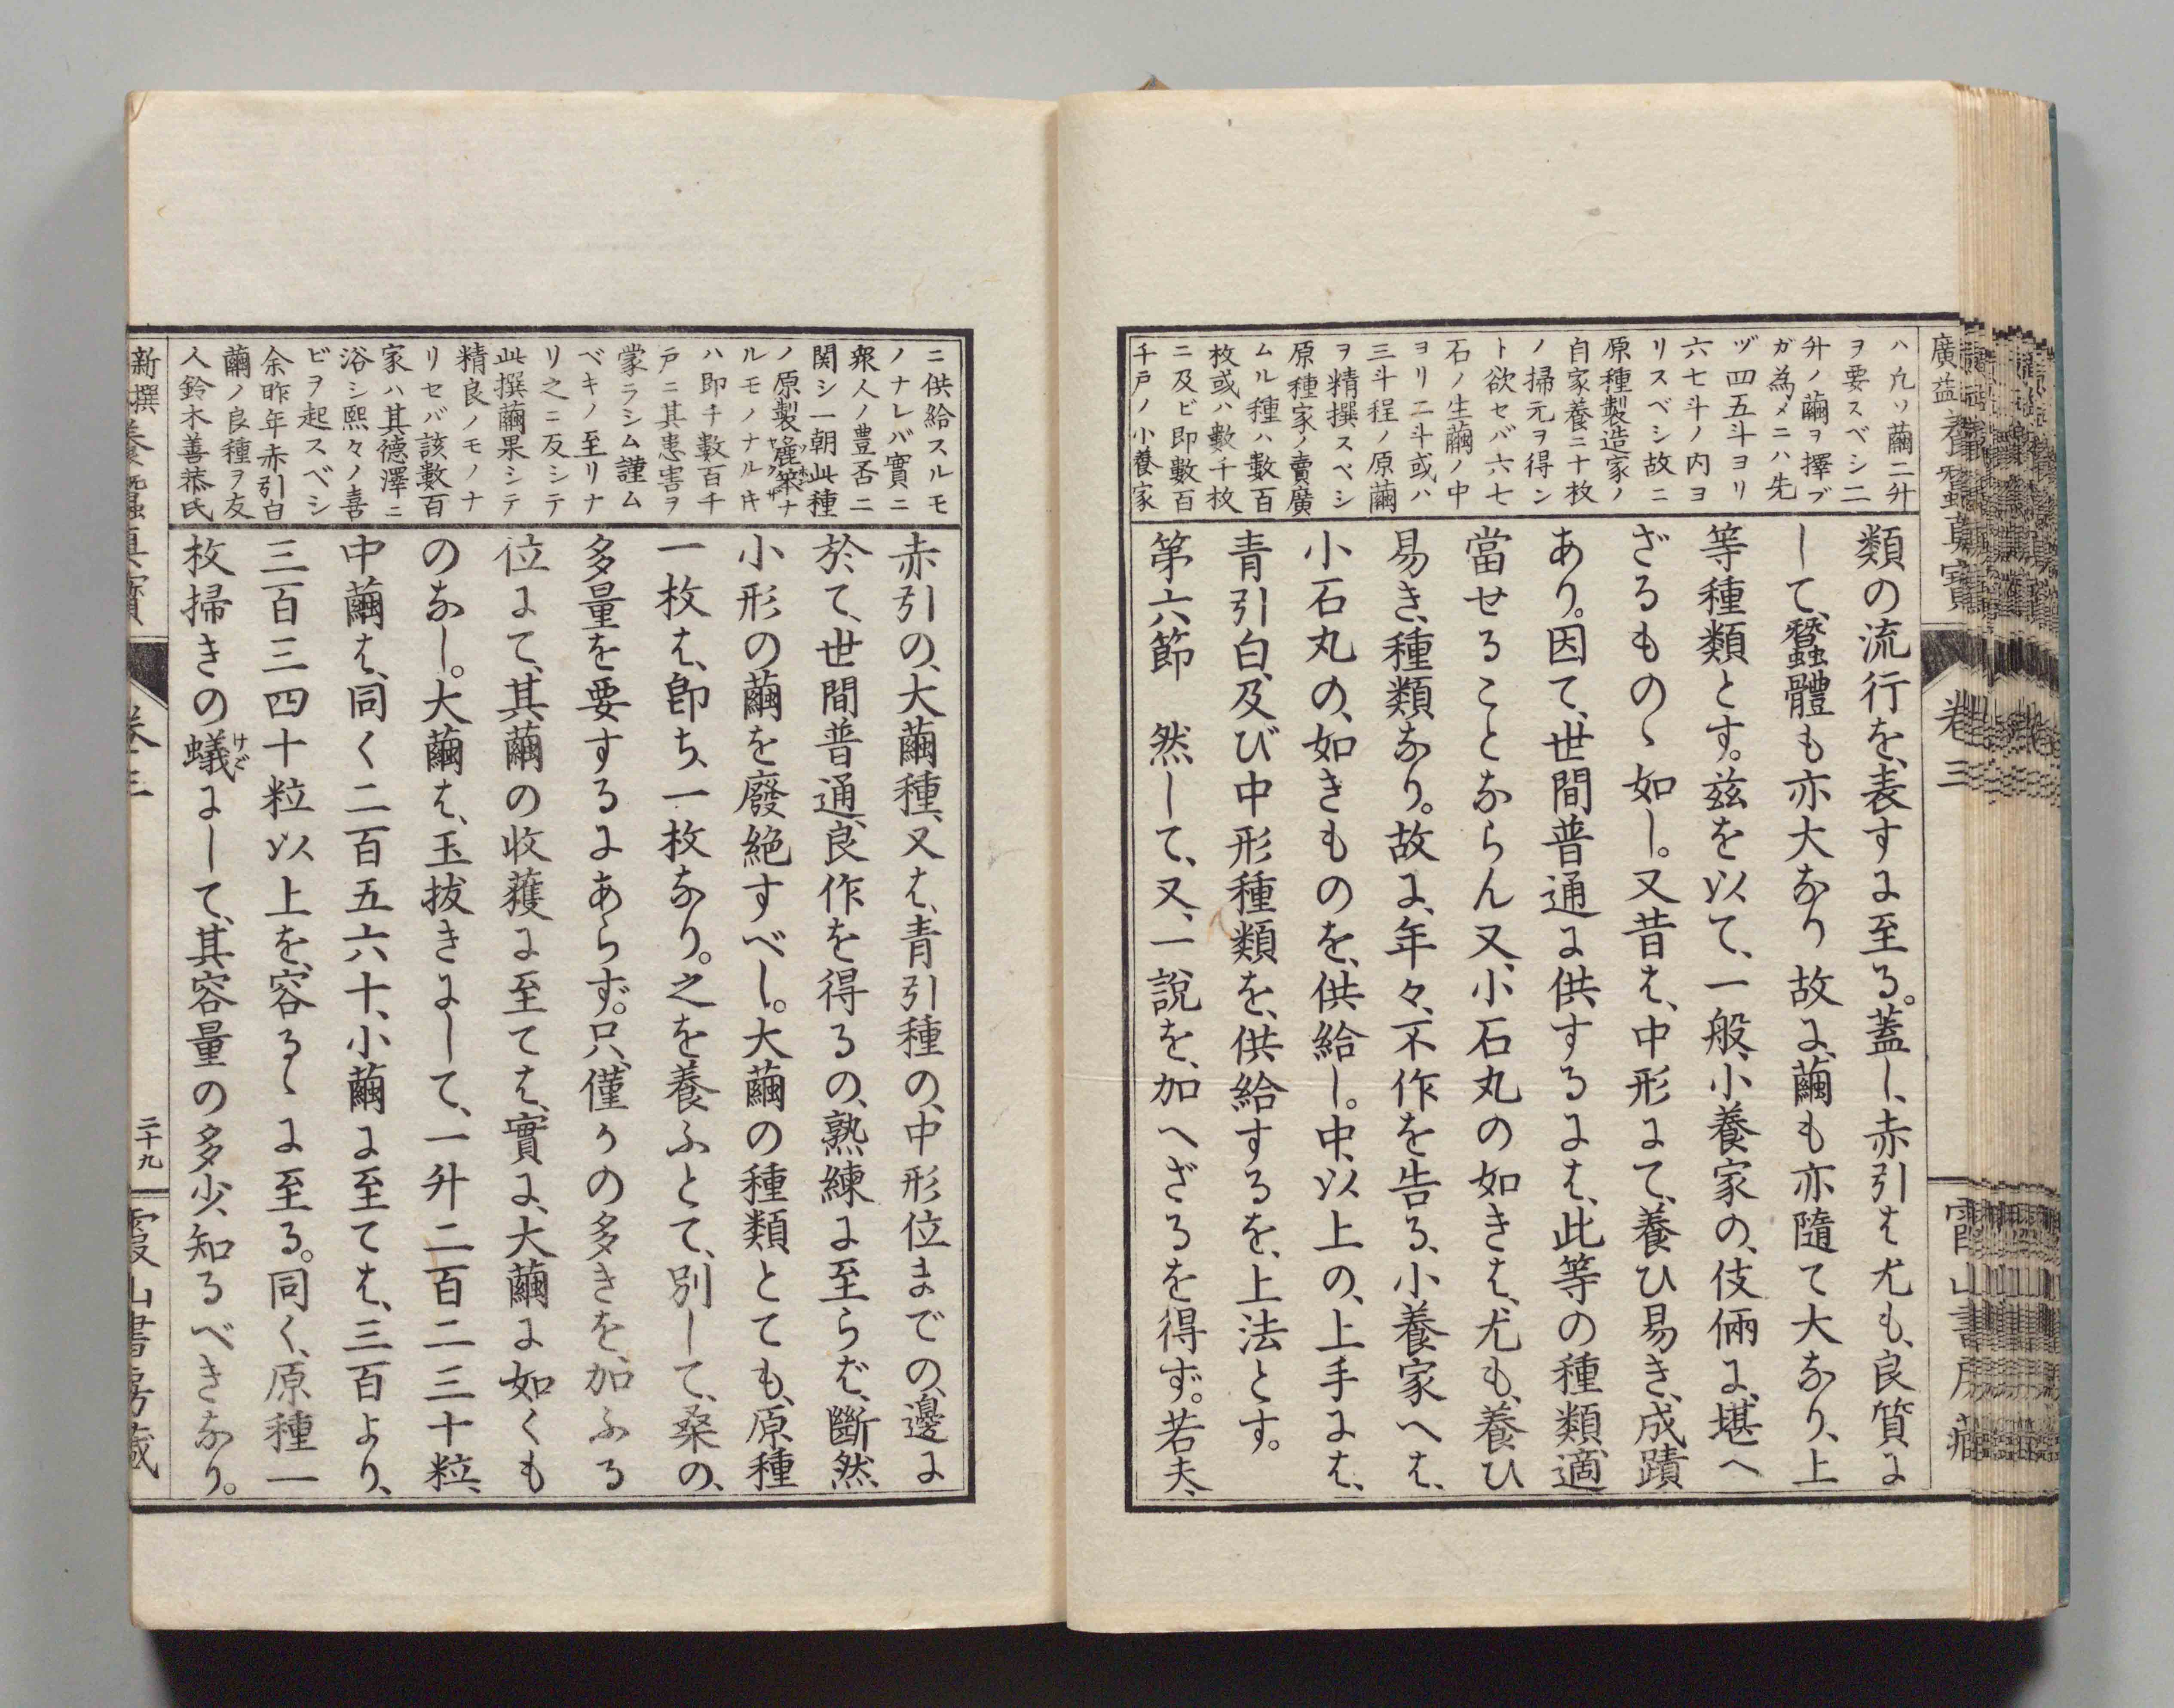 廣益養蠶真寶 卷三 霞山書房藏
ハ凡ソ繭二升
ヲ要スベシ二
升ノ繭ヲ擇ブ
ガ為メニハ先
ヅ四五斗ヨリ
六七斗ノ内ヨ
リスベシ故ニ
原種製造家ノ
自家養ニ十枚
ノ掃元ヲ得ン
ト欲セバ六七
石ノ生繭ノ中
ヨリ二斗或ハ
三斗程ノ原繭
ヲ精撰スベシ
原種家ノ賣廣
ムル種ハ數百
枚或ハ數千枚
ニ及ビ即數百
千戸ノ小養家
類の流行を、表すに至る。蓋し、赤引は尤も、良質に
して、蠶體も亦大なり故に、繭も亦隨て大なり、上
等種類とす。茲を以て、一般、小養家の、伎倆に、堪へ
ざるものゝ如し。又昔は、中形にて、養ひ易き、成蹟
あり。因て、世間普通に供、するには、此等の種類適
當せることならん又、小石丸の如きは、尤も、養ひ
易き、種類なり。故に、年々、不作を告る、小養家へは、
小石丸の、如きものを、供給し。中、以上の、上手には、
青引白、及び中形種類を、供給するを、上法とす。
第六節　然して、又、一說を、加へざるを得ず。若夫、
ニ供給スルモ
ノナレバ實ニ
衆人ノ豊否ニ
関シ一朝此種
ノ原製麁策ナ
ルモノナルキ
ハ即千數百千
戸ニ其患害ヲ
蒙ラシム謹ム
ベキノ至リナ
リ之ニ反シテ
此撰繭果シテ
精良ノモノナ
リセバ該數百
家ハ其德澤ニ
浴シ熙々ノ喜
ビヲ起スベシ
余昨年赤引白
繭ノ良種ヲ友
人鈴木善恭氏
赤引の、大繭種、又は、青引種の、中形位までの、邊に
於て、世間普通、良作を得るの、熟練に至らば、斷然
小形の繭を廢絶すべし。大繭の種類とても、原種
一枚は、卽ち、一枚なり。之を養ふとて、別して、桑の、
多量を要するにあらず。只、僅かの多きを、加ふる
位にて、其繭の收蔆に至ては、實に、大繭に如くも
のなし。大繭は、玉拔きにして、一升二百二三十粒、
中繭は、同く二百五六十、小繭に至ては、三百より、
三百三四十粒以上を、容るゝに至る。同く、原種一
枚掃きの蟻にして、其容量の多少、知るべきなり。
けご
新撰養蠶真寶 卷三 二十九 霞山書房藏